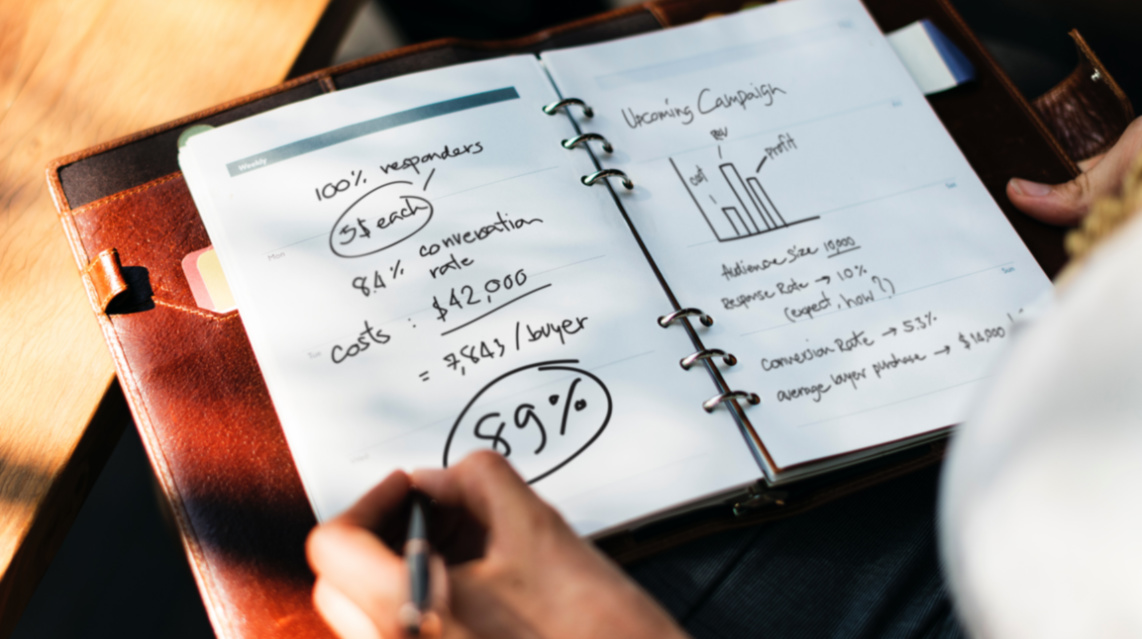 Weekly
100% responders
5$ each
8.4% conversation
rate
costs : $42,000
= 7,843/buyer
89%
Mon
Upcoming Campaign
cost
rev
profit
Audience size 10,000
Response Rate → 10%
(expect, how?)
Conversion Rate → 5.3%
average buyer purchase → $14,000
Sun